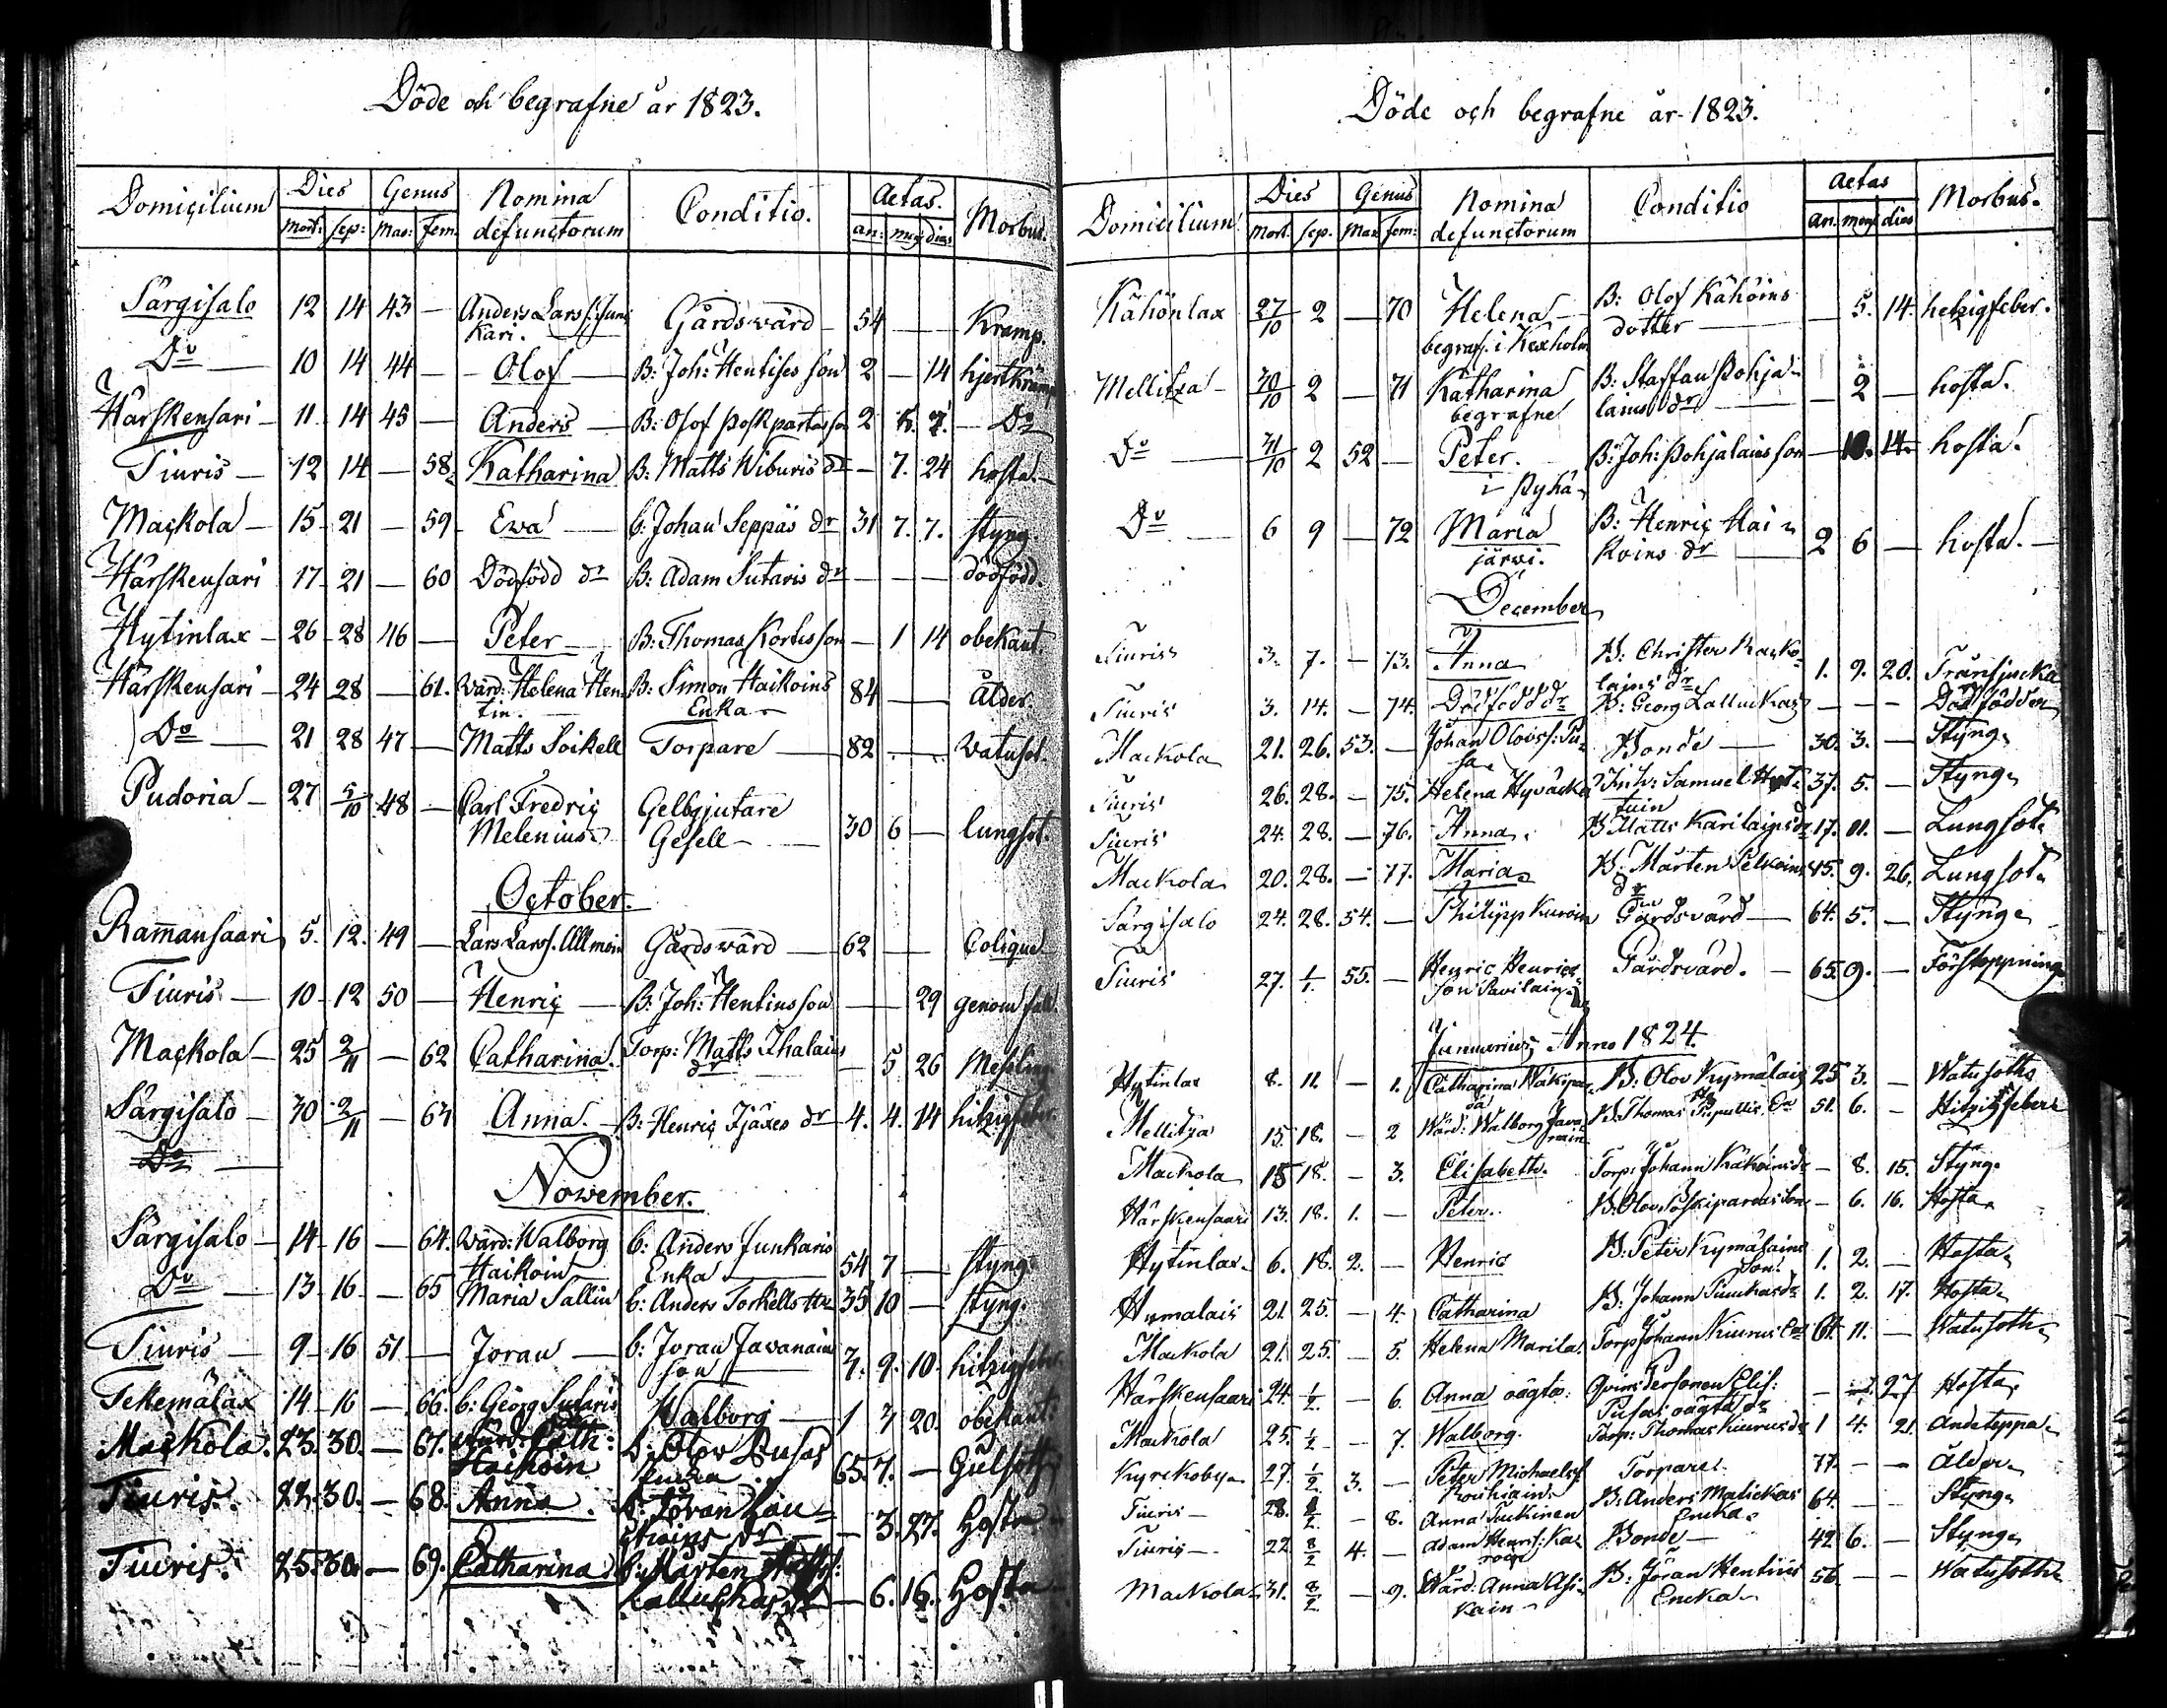 Döde och begrafne år 1823.
Domicilium Dies Genus Nomina defunctorum Conditio. Aetas. Morbus.
Mort: sep: Mas: fem. an: men: dies
Särgisalo 12 14 43 — Anders Larss: Jun- Gårdsvärd 54 — — Kramp.
kari.
Do 10 14 44 — Olof B: Joh: Hentises son 2 — 14
Härskensari 11 14 45 — Anders B: Olof 2 Do
Tiuris 12 14 — 58 Katharina B: Matts Wiburis dr — 7. 24 hosta.
Mackola 15 21 — 59 Ewa b: Johan Seppäs dr 31 7. 7. styng
Härskensari 17 21 — 60 Dödfödd dr B: Adam Sutaris dr — — — dödfödd.
Hytinlax 26 28 46 — Peter B: Thomas Kortes son — 1 14 obekant.
Härskensari 24 28 — 61. Wärd: Helena Hen- B: Simon Haikoins 84 — — Ålder
tin. Enka
Do 21 28 47 — Matts Soikell Torpare 82 — — watusot.
Pudoria 27 5/10 48 — Carl Fredric Gelbgjutare
Melenius Gesell 30 6 — lungsot.
October.
Ramansaari 5. 12. 49 — Lars Larss. Allmoin Gårdsvärd 62 — — Colique
Tiuris 10 12 50 — Henric B: Joh: Hentins son — — 29 genomfall.
Mackola 25 2/11 — 62 Catharina. Torp: Matts Ihalains — 5 26 Messling
dr
Särgisalo 30 2/11 — 63 Anna. B: Henric Ijäxes dr 4. 4. 14 hitzigfeber
Do
November.
Särgisalo 14 16 — 64. Wärd: Walborg b: Anders Junkaris 54 7 — styng.
Haikoin Enka
Do 13 16 — 65 Maria Tallin b: Anders Torkells 35 10 — styng.
Tiuris 9 16 51 — Joran b: Joran Javanain 9. 10. hitzigfeber
son
Tekemälax 14 16 — 66. b: Georg Sutaris Walborg 1 20. obekant:
Mackola. 23. 30. — 67. Wärd: Cath: b: Olov Pusas 65. 7. — Gulsoth
Haikoin Encka
Tiuris. 22. 30. — 68. Anna. b: Jöran — 3. 27. Hosta
dr
Tiuris. 25. 30. — 69. Catharina b: Mårten — 6. 16. Hosta
Lallukkas dr
Döde och begrafne år 1823.
Domicilium Dies Genus Nomina defunctorum Conditio Aetas Morbus.
Mort. sep. Mas fem: an. mens dies
Kähönlax 27/10 2 — 70 Helena B: Olof Kähöins — 5. 14. hetzigfeber.
begraf. i Kexholm dotter
Mellitza 30/10 2 — 71 Katharina B: Staffan Pohja- — 2 — hosta.
begrafne lains dr
Do 31/10 2 52 — Peter. B: Joh: Pohjalains son — 10. 14. hosta.
i Pyhä-
Do 6 9 — 72 Maria B: Henric Hai- 2 6 — hosta.
järwi. koins dr
December
Tiuris 3. 7. — 73. Anna B: Christer Racko- 1. 9. 20. Trånsjucka
lains dr
Tiuris 3. 14. — 74. Dödfödd dr B: Georg Lallukas — — — Dödfödder
Mackola 21. 26. 53. — Johan Olovss: Pu- Bonde 30. 3. — Styng.
sa
Tiuris 26. 28. — 75. Helena Hyväckä Inh: Samuel 37. 5. — Styng.
Tiuris 24. 28. — 76. Anna. B: Matts Karilains dr 17. 11. — Lungsot.
Mackola 20. 28. — 77. Maria B: Mårten Pelkoins 45. 9. 26. Lungsot.
dr
Särgisalo 24. 28. 54. — Philipp Kuroin Gårdsvärd 64. 5. — Styng.
Tiuris 27. 1/1 55. — Henric Henrics Gårdsvärd. 65. 9. — Förstoppning
son Pavilain.
Januarius, Anno 1824.
Hytinlax 8. 11. — 1. Catharina Näkipai- B: Olov Kymäläis 25 3. — Watusoth
Mellitza 15 18. — 2 Wärd: Walborg Java- B: Thomas Ea 51. 6. — Hitzigfeber
nain
Mackola 15 18. — 3. Elisabeth. Torp: Johann Käköins dr — 8. 15. Styng.
Härskensaari 13. 18. 1. — Peter. B: Olov Poskipardas son — 6. 16. Hosta.
Hytinlax. 6. 18. 2. — Henric B: Peter Kymäläins 1. 2. — Hosta.
Son.
Humalais 21. 25. — 4. Catharina B: Johann dr 1. 2. 17. Hosta.
Mackola 21. 25. — 5. Helena Marila. Torp: Johann Kiurus 64. 11. — Watusoth
Härskensaari 24. 1/2 — 6. Anna oägta: Qvinspersonen Elis: — 27 Hosta.
Pusas oägta dr
Mackola 25. 1/2 — 7. Walborg. Torp: Thomas Kiurus dr 1 4. 21. Andetäppa.
Kyrckoby 27. 1/2 3. — Peter Michaelss: Torpare. 77. — — Ålder.
Rouhiain.
Tiuris 28. 8/2 — 8. Anna Tuckinen B: Anders Matickas 64. — — Styng.
Encka.
Tiuris 22 8/2 4. — Adam Henrs: Ka- Bonde 42 6. — Styng.
Mackola 31. 8/2 — 9. Wärd: Anna Asi- B: Jöran Hentins 56. — — Watusoth
kain Encka.